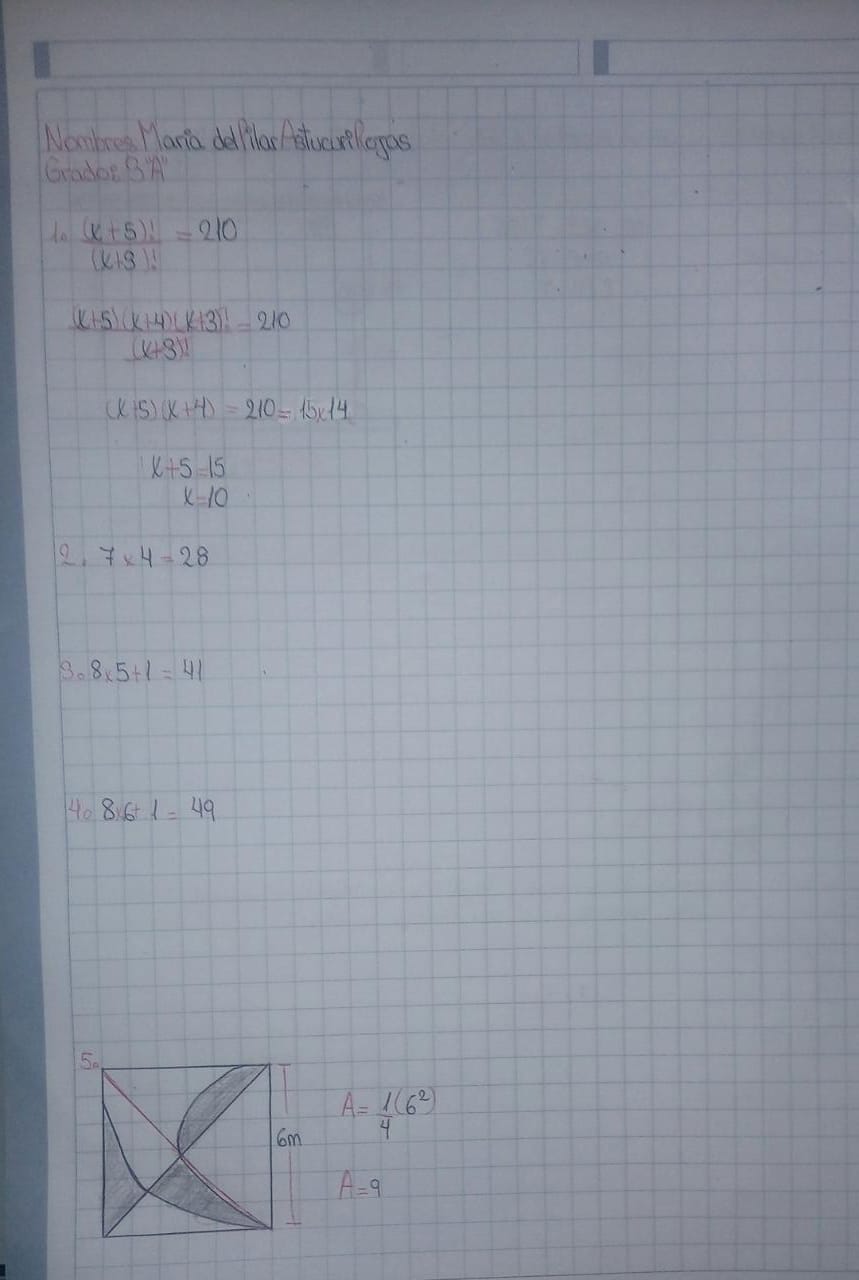 Nombres: María del Pilar Astucuri Rojas
Grado: 3"A"
1. (x+5)! = 210
(x+3)!
(x+5)(x+4)(x+3)! = 210
(x+3)!
(x+5)(x+4) = 210 = 15x14
x+5=15
x=10
2. 7x4=28
3. 8x5+1=41
4. 8x6+1=49
5.
6m
A= 1/4(6²)
A=9